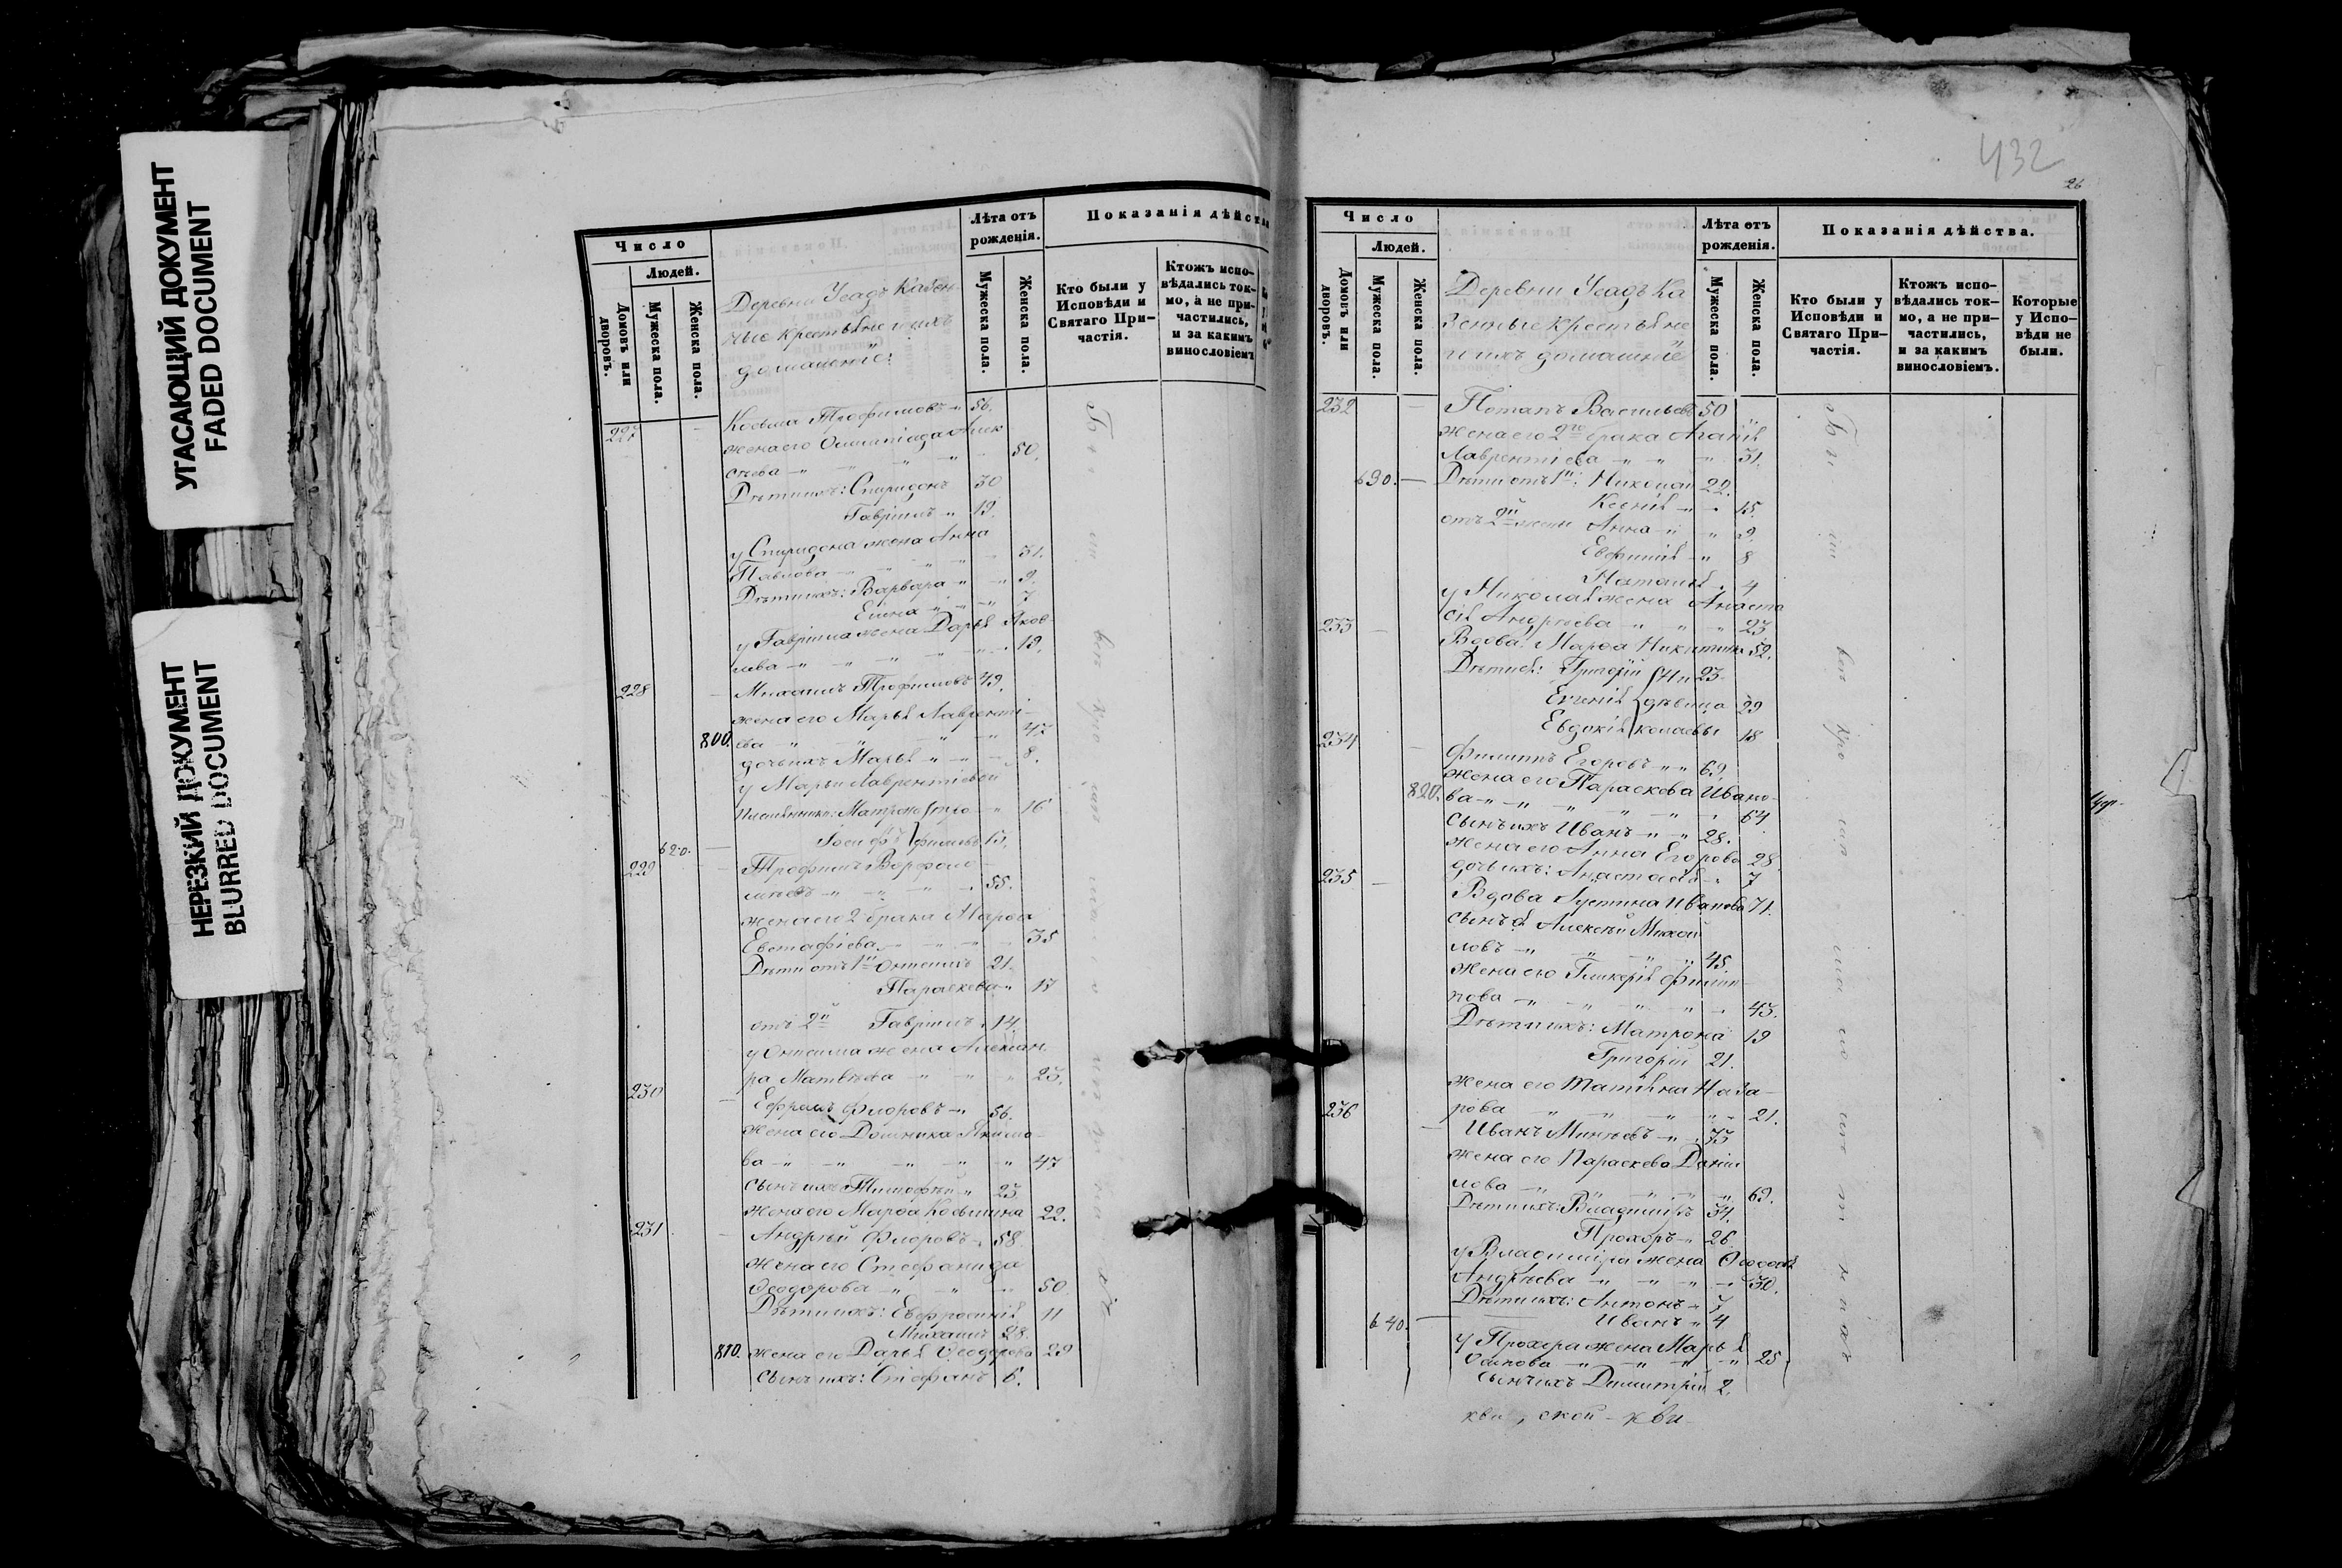 УГАСАЮЩИЙ ДОКУМЕНТ
FADED DOCUMENT
НЕРЕЗКИЙ ДОКУМЕНТ
BLURRED DOCUMENT
Число
Людей.
Домовъ или дворовъ.
Мужеска пола.
Женска пола.
Деревни Усадъ Казен-
ные крестьяне и ихъ
домашніе:
Лѣта отъ рожденія.
Мужеска пола.
Женска пола.
Показанія дѣйств
Кто были у Исповѣди и Святаго При-частія.
Ктожъ испо-вѣдались ток-мо, а не при-частились, и за какимъ винословіемъ
227 Косьма Трофимовъ 56.
жена его Олимпіада Алек
сѣева 50.
Дѣти ихъ: Спиридонъ 30
Гавріилъ 19.
у Спиридона жена Анна
Павлова 31.
Дѣти ихъ: Варвара 9.
Елена 7
у Гавріила жена Дарья Яков-
лева 19.
228 Михаилъ Трофимовъ 49.
жена его Марья Лаврентi-
800. ева 47
дочь ихъ Марья 8.
у Марьи Лаврентіевой
Матрона 16
620. Іосифъ 13.
229 Трофимъ Варфоло-
мѣевъ 55.
жена его 2 брака Марѳа
Евстафіева 35
Дѣти отъ 1й Онисимъ 21.
Параскева 17
отъ 2й Гавріилъ 14.
у Онисима жена Александ
ра Матвѣева 23.
230 Ефремъ Флоровъ 56.
жена его Домника Якимо-
ва 47
сынъ ихъ Тимофѣй 23
жена его Марѳа Косьмина 22.
231 Андрей Флоровъ 58
жена его Стефанида
Ѳеодорова 50
Дѣти ихъ: Евфросинія 11
Михаилъ 28.
810. жена его Дарья Ѳеодорова 29
сынъ ихъ: Стефанъ 6.
432
26
Число
Людей.
Домовъ или дворовъ.
Мужеска пола.
Женска пола.
Деревни Усадъ Ка
зенные крестьяне
и ихъ домашніе
Лѣта отъ рожденія.
Мужеска пола.
Женска пола.
Показанія дѣйства.
Кто были у Исповѣди и Святаго При-частія.
Ктожъ испо-вѣдались ток-мо, а не при-частились, и за какимъ винословіемъ.
Которые у Испо-вѣди не были.
232 Потапъ Васильевъ 50
жена его 2го брака Агаѳія
Лаврентіева 31.
630. Дѣти отъ 1й: Николай 22.
Ксенія 15.
отъ 2й жены Анна 9.
Евфимія 8
Наталія 4
у Николая жена Анаста
сія Андрѣева 23
233 Вдова Марѳа Никитина 52.
Дѣти ея: Григорій 23.
Евгенія дѣвица 29
Евдокія 18
234 Филиппъ Егоровъ 69.
жена его Параскева Ивано-
820. ва 64
сынъ ихъ Иванъ 28.
жена его Анна Егорова 28.
дочь ихъ: Анастасія 7
235 Вдова Іустина Иванова 71.
сынъ ея Алексѣй Михай
ловъ 45.
жена его Гликерія Филип-
пова 43.
Дѣти ихъ: Матрона 19
Григорій 21.
жена его Татіяна Наза-
рова 21.
236 Иванъ Минѣевъ 73
жена его Параскева Даніи
лова 69.
Дѣти ихъ: Владиміръ 34.
Прохоръ 26.
у Владиміра жена Ѳеодосія
Андрѣева 30.
Дѣти ихъ: Антонъ 7
640. Иванъ 4
у Прохора жена Марья
Осипова 25
сынъ ихъ Димитрій 2.